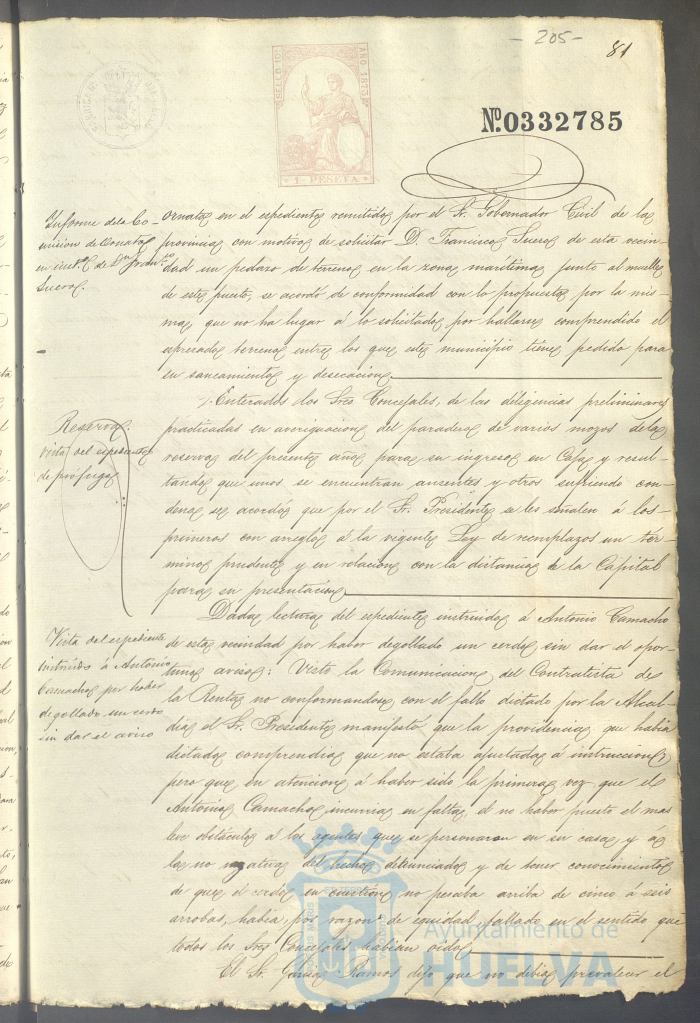 - 205 -
81
SELLO 10º
AÑO 1873
1 PESETA
Nº 0332785
Informe de la Co-
mision de Ornato
en inst.ª de Dn Fran.co
Sueros.
ornato en el espediente remitido por el Sr. Gobernador Civil de la
provincia con motivo de solicitar D. Francisco Suero de esta vecin-
dad un pedazo de terreno en la zona marítima junto al muelle
de este puerto, se acordó de conformidad con lo propuesto por la mis-
ma, que no ha lugar á lo solicitado por hallarse comprendido el
espresado terreno entre los que este municipio tiene pedido para
su saneamiento y desecacion.
Reserva.
Vista del espediente
de prófugos
Enterados los Sres Concejales, de las diligencias preliminares
practicadas en averiguacion del paradero de varios mozos de la
reserva del presente año para su ingreso en Caja y resul-
tando que unos se encuentran ausentes y otros sufriendo con-
dena se acordó que por el Sr. Presidente se les señalen á los
primeros con arreglo á la vigente Ley de reemplazos un tér-
mino prudente y en relacion con la distancia de la Capital
para su presentacion
Vista del espediente
instruido á Antonio
Camacho por haber
degollado un cerdo
sin dar el aviso
Dada lectura del espediente instruido á Antonio Camacho
de esta vecindad por haber degollado un cerdo sin dar el opor-
tuno aviso: Visto la Comunicacion del Contratista de
la Renta no conformandose con el fallo dictado por la Alcal-
dia el Sr. Presidente manifestó que la providencia que habia
dictado comprendia que no estaba ajustada á instruccion,
pero que en atencion á haber sido la primera vez que el
Antonio Camacho incurria en falta, el no haber puesto el mas
leve obstáculo á los agentes que se personaron en su casa, y á
la no negativa del hecho denunciado y de tener conocimiento
de que el cerdo en cuestion no pesaba arriba de cinco á seis
arrobas, habia, por razon de equidad, fallado en el sentido que
todos los Sres Concejales habian oido.
El Sr. Garcia Ramos dijo que no debia prevalecer el
Ayuntamiento de
HUELVA